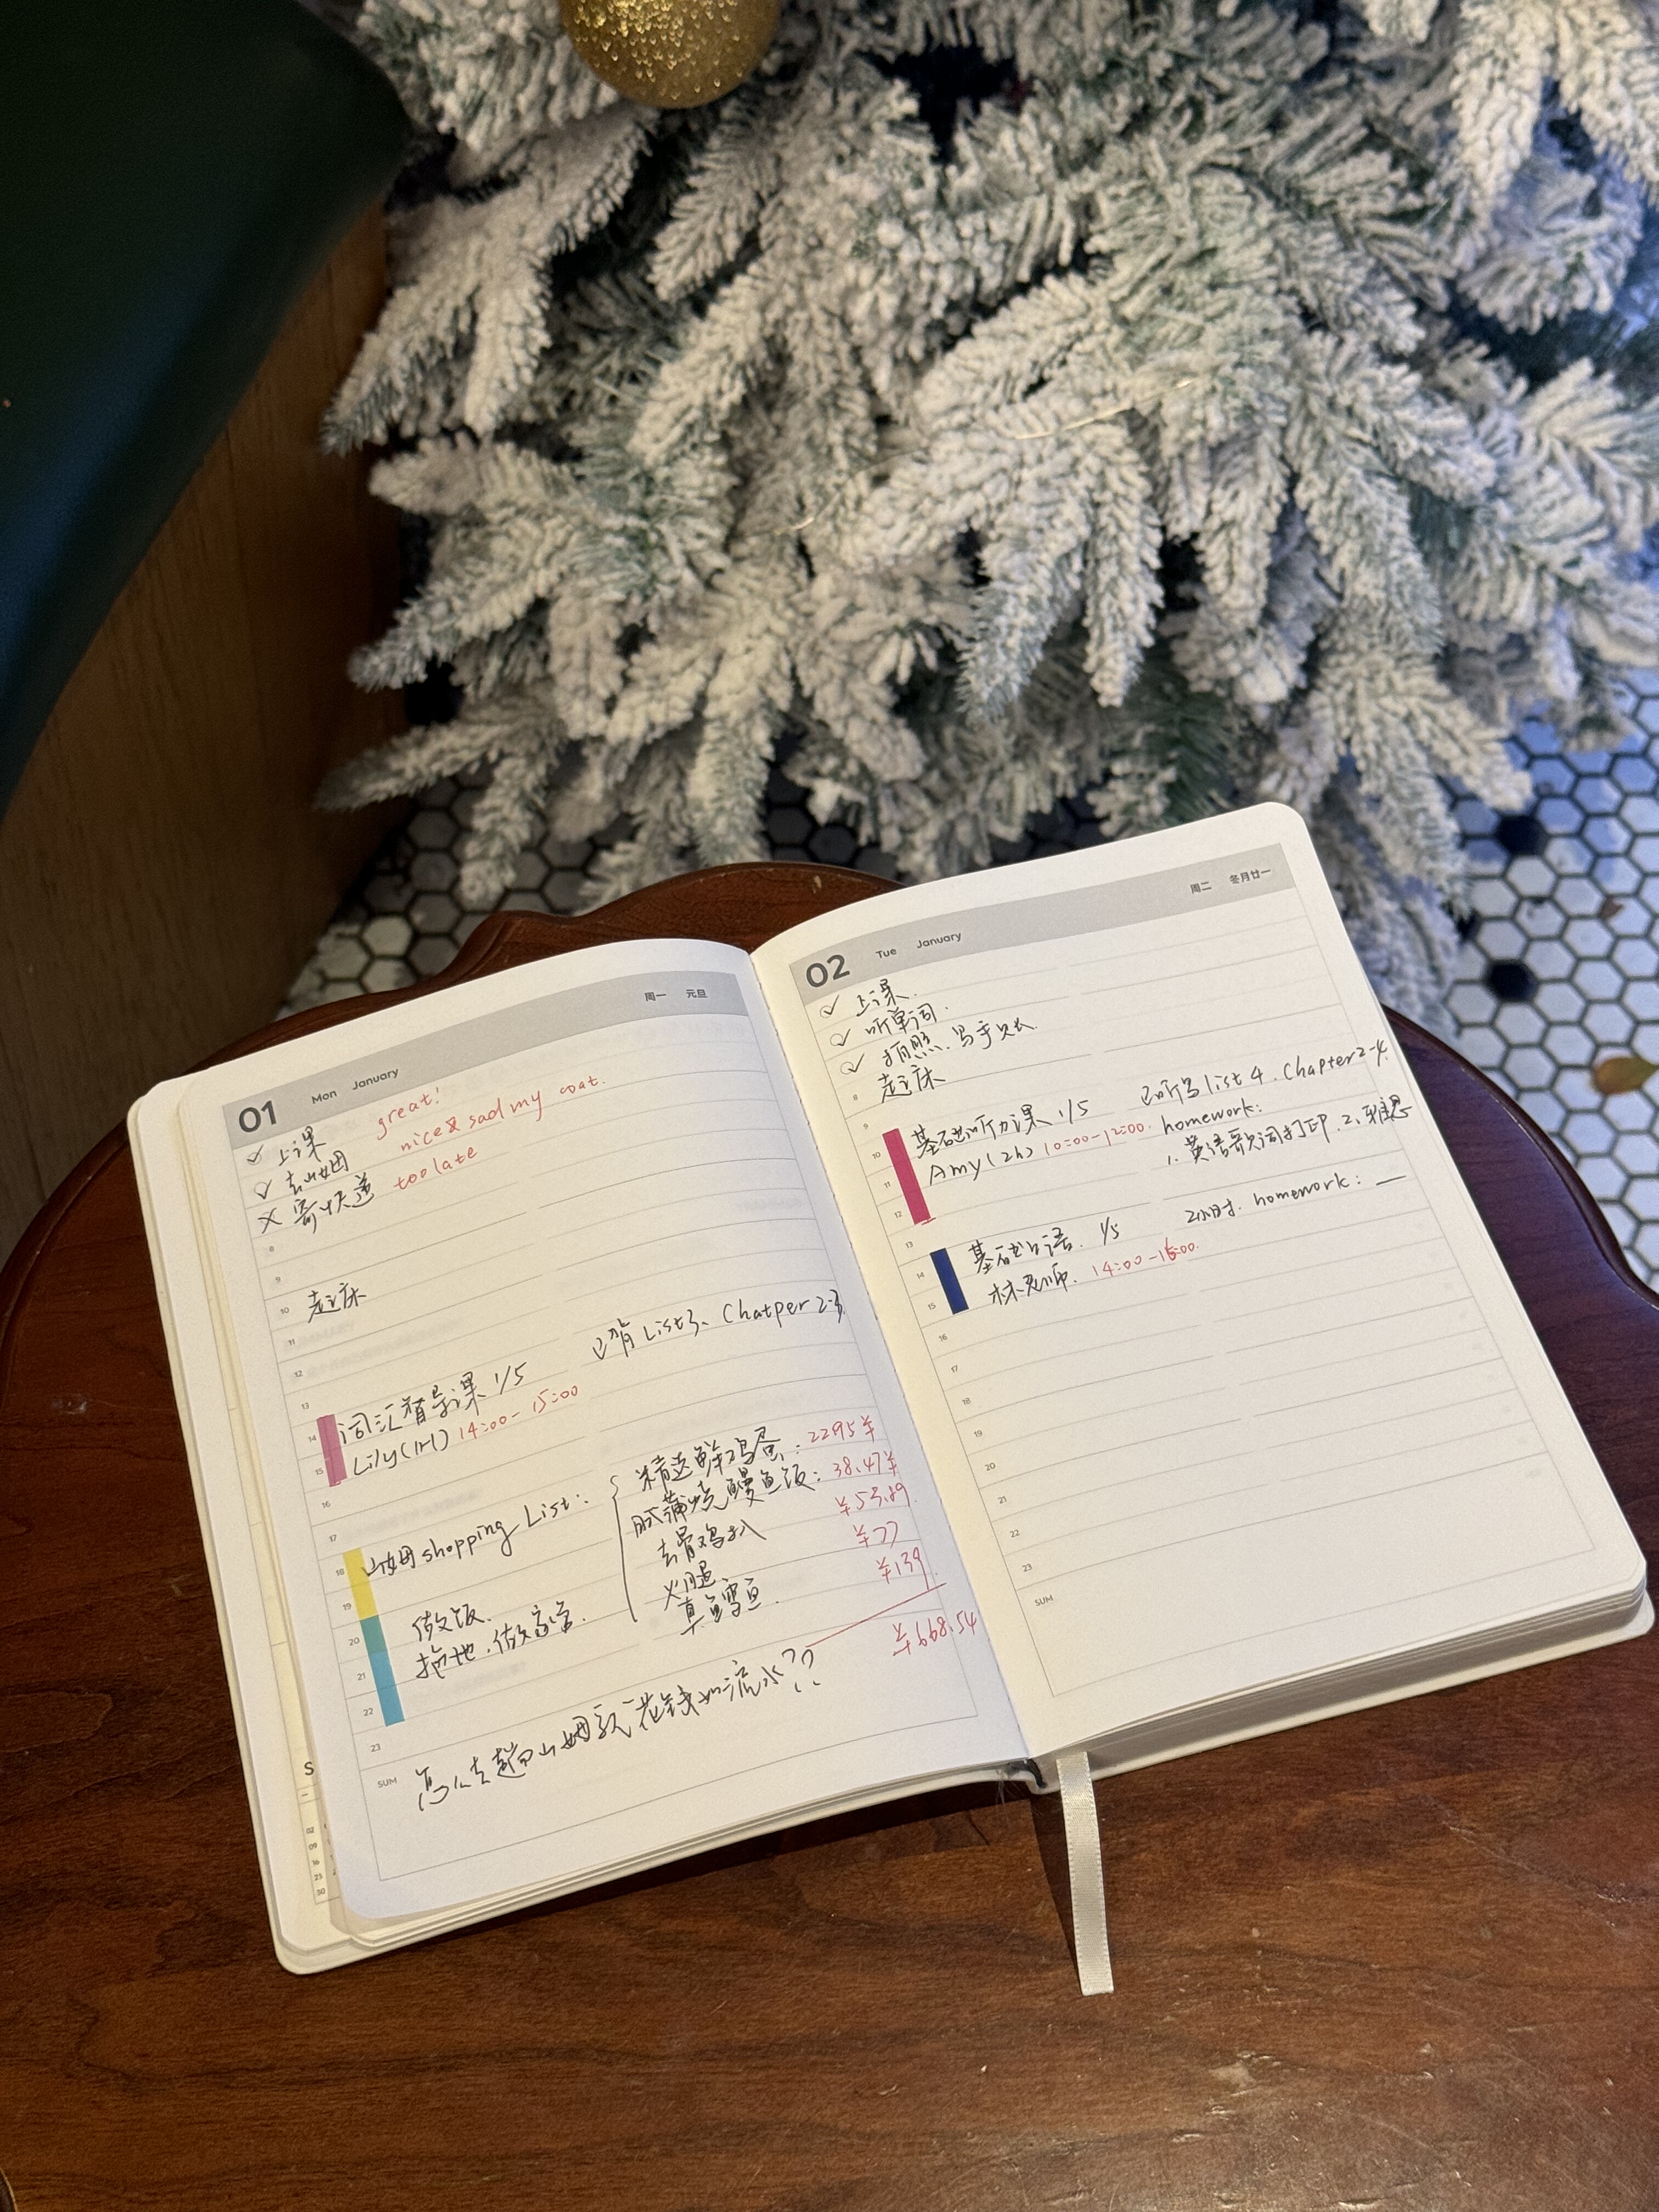 01 Mon January 周一 元旦
✓ 上课 great!
✓ 去山姆 nice & sad my coat.
✗ 寄快递 too late
8
9
10 起床
11
12 已背 List3、Chatper 2-3
13
词汇指导课 1/5
14 Lily(1h) 14:00-15:00
15
16
17
18 山姆 shopping List:
精选鲜鸡蛋: 22.95¥
蒲烧鳗鱼饭: 38.47¥
去骨鸡扒 ¥53.89
火腿 ¥77
真鱼雪鱼. ¥139
¥668.54
19
20 做饭.
21 拖地.做家务.
22
23
SUM 怎么去趟山姆就花钱如流水??
S
02
09
16
23
30
02 Tue January 周二 冬月廿一
✓ 上课.
✓ 听单词.
✓ 拍照.写手
8 起床
9
基础听力课 1/5 已听写 list 4. Chapter 2-4.
10 Amy(2h) 10:00-12:00. homework:
11 1. 英语歌词打印. 2. 雅思
12
13
基础口语. 1/5 2小时. homework: —
14 林老师. 14:00-16:00.
15
16
17
18
19
20
21
22
23
SUM